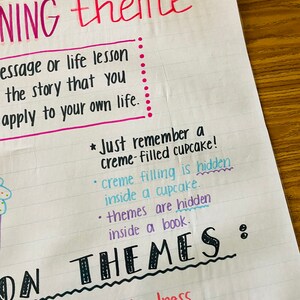 NING theme
essage or life lesson
the story that you
apply to your own life.
* Just remember a
creme-filled cupcake!
• creme filling is hidden
inside a cupcake.
• themes are hidden
inside a book.
ON THEMES: